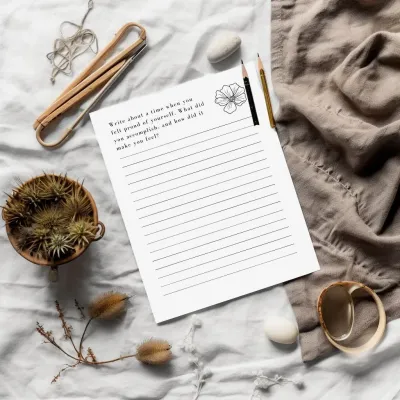 Write about a time when you
felt proud of yourself. What did
you accomplish, and how did it
make you feel?